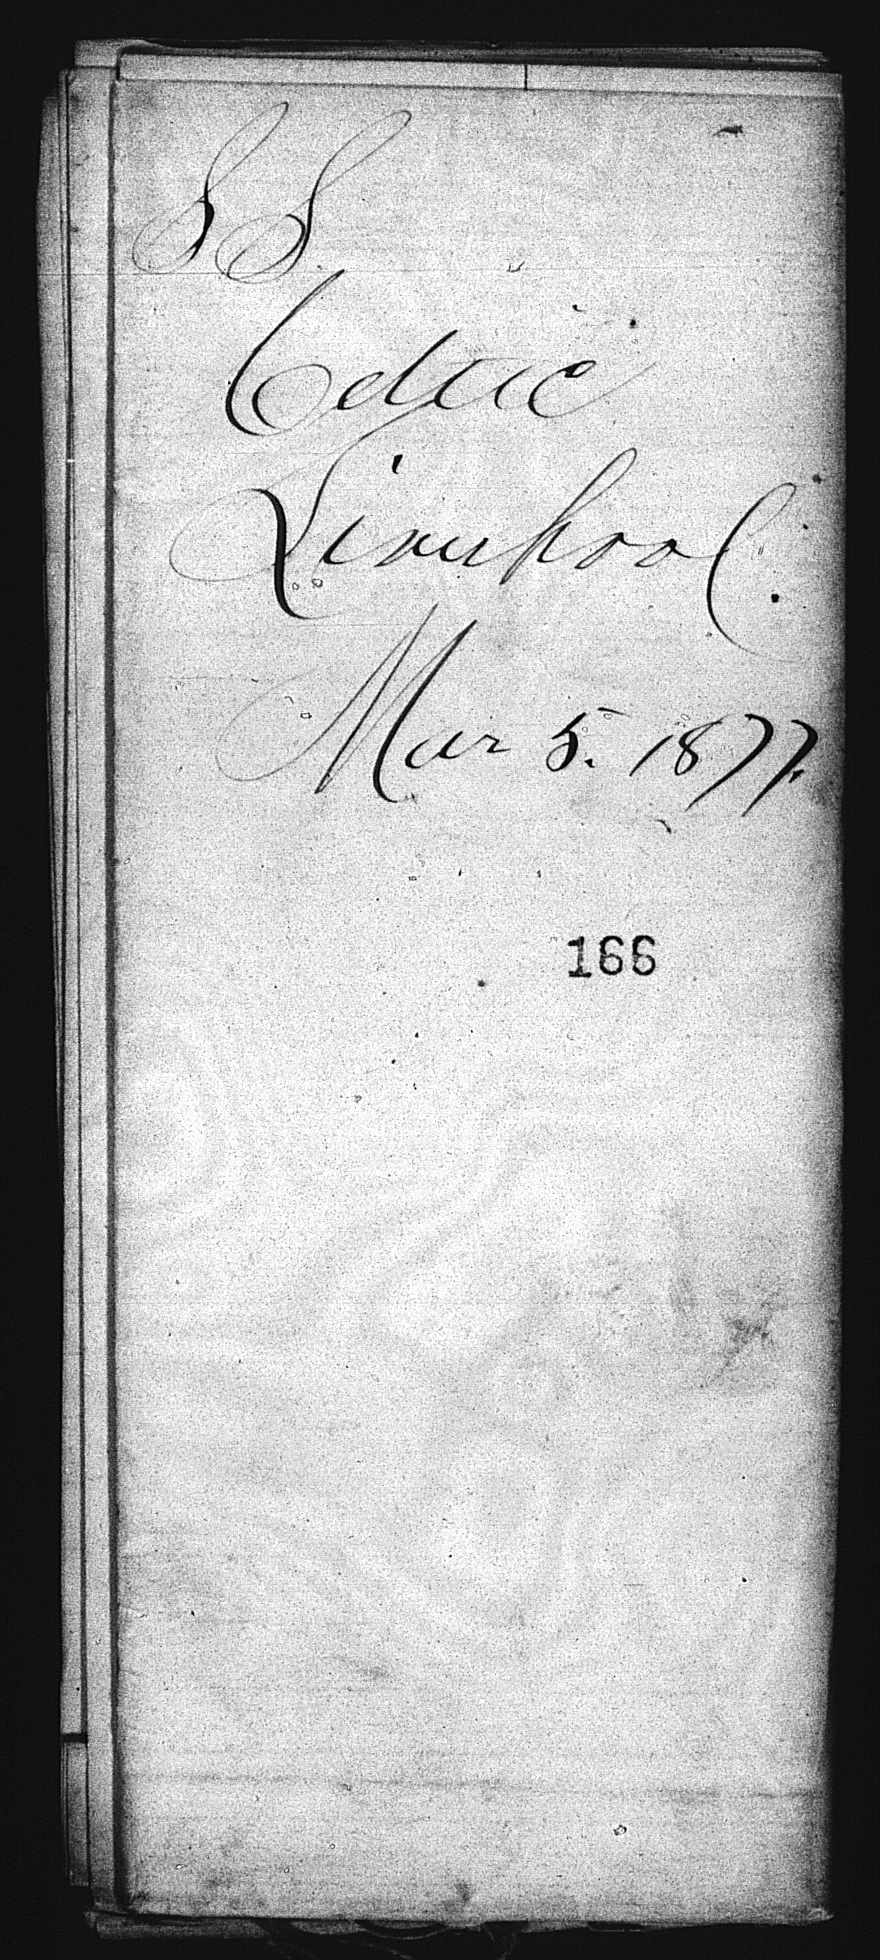 SS
Celtic
Liverpool.
Mar 5. 1877.
166